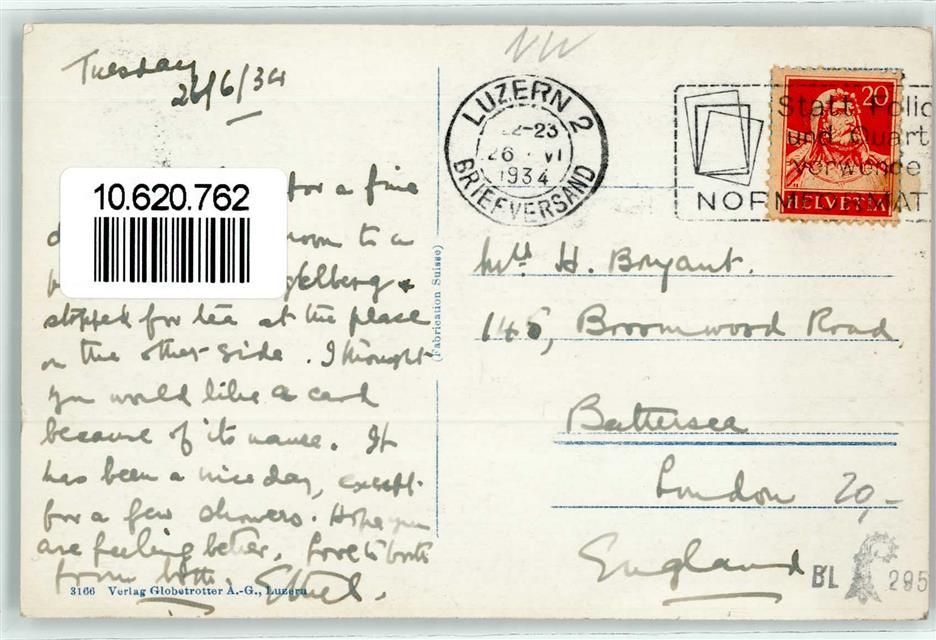 Tuesday
26/6/34
for a fine
noon to a
gelberg &
stopped for tea at the place
on the other side. I thought
you would like a card
because of its name. It
has been a nice day, except
for a few showers. Hope you
are feeling better. Love to both
from both, Ethel.
3166 Verlag Globetrotter A.-G., Luzern
(Fabrication Suisse)
10.620.762
LUZERN 2
22-23
26. VI
1934
BRIEFVERSAND
Statt Folio
und Quart
verwende
NORMALFORMAT
20
HELVETIA
H. Bryant.
146, Broomwood Road,
Battersea
London 20,-
England
BL 295